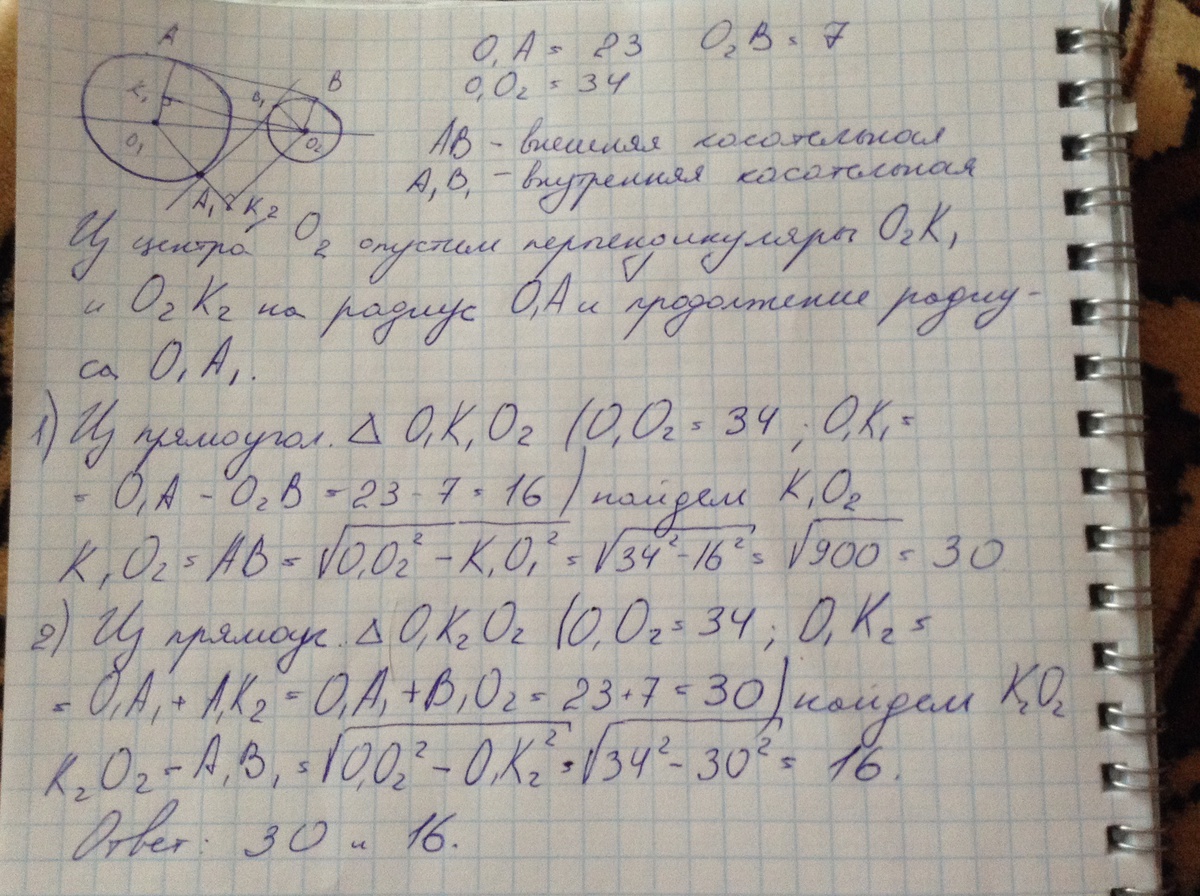 A
B
K₁
B₁
O₁
O₂
A₁ K₂
O₁A = 23 O₂B = 7
O₁O₂ = 34
AB - внешняя касательная
A₁B₁ - внутренняя касательная
Из центра O₂ опустим перпендикуляры O₂K₁
и O₂K₂ на радиус O₁A и продолжение радиу-
са O₁A₁.
1) Из прямоугол. Δ O₁K₁O₂ (O₁O₂ = 34 ; O₁K₁ =
= O₁A - O₂B = 23 - 7 = 16) найдем K₁O₂
K₁O₂ = AB = √(O₁O₂² - K₁O₁²) = √(34² - 16²) = √900 = 30
2) Из прямоуг. Δ O₁K₂O₂ (O₁O₂ = 34 ; O₁K₂ =
= O₁A₁ + A₁K₂ = O₁A₁ + B₁O₂ = 23 + 7 = 30) найдем K₂O₂
K₂O₂ = A₁B₁ = √(O₁O₂² - O₁K₂²) = √(34² - 30²) = 16.
Ответ: 30 и 16.